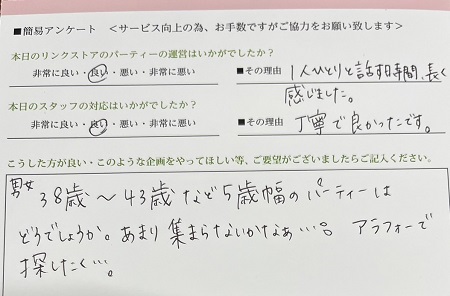 ■簡易アンケート ＜サービス向上の為、お手数ですがご協力をお願い致します＞
本日のリンクストアのパーティーの運営はいかがでしたか？
非常に良い・良い・悪い・非常に悪い
■その理由 1人ひとりと話す時間、長く
感じました。
本日のスタッフの対応はいかがでしたか？
非常に良い・良い・悪い・非常に悪い
■その理由 丁寧で良かったです。
こうした方が良い・このような企画をやってほしい等、ご要望がございましたらご記入ください。
男女
38歳～43歳など5歳幅のパーティーは
どうでしょうか。あまり集まらないかなぁ…。 アラフォーで
探したく…。